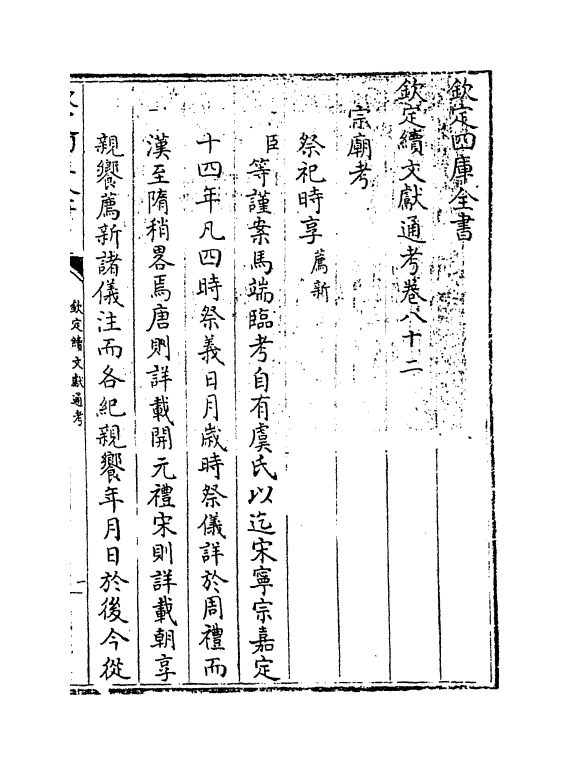 欽定四庫全書
欽定續文獻通考卷八十二
宗廟考
祭祀時享薦新
臣等謹案馬端臨考自有虞氏以迄宋寧宗嘉定
十四年凡四時祭義日月歲時祭儀詳於周禮而
漢至隋稍畧焉唐則詳載開元禮宋則詳載朝享
親饗薦新諸儀注而各紀親饗年月日於後今從
欽定續文獻通考